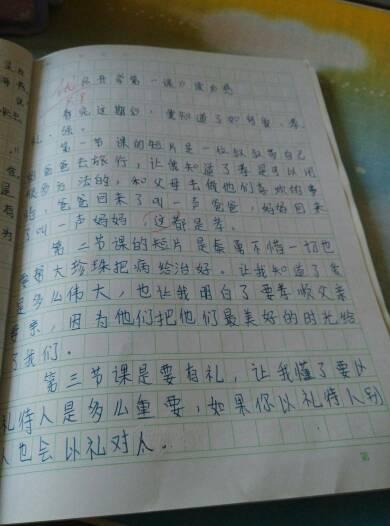 优
《开学第一课》读后感
看完这期的，我知道了如何爱、孝、
礼、强。
第一节课的短片是一位叔叔带自己
的爸爸去旅行，让我知道了孝是可以用
很多方法的，和父母去做他们喜欢的事
情，爸爸回来了叫一声爸爸，妈妈回来
了叫一声妈妈，这都是孝。
第二节课的短片是秦勇不惜一切也
要帮大珍珠把病给治好。让我知道了爱
是多么伟大，也让我明白了要孝顺父亲
母亲，因为他们把他们最美好的时光给
了我们。
第三节课是要有礼，让我懂了要以
礼待人是多么重要，如果你以礼待人别
人也会以礼对人。